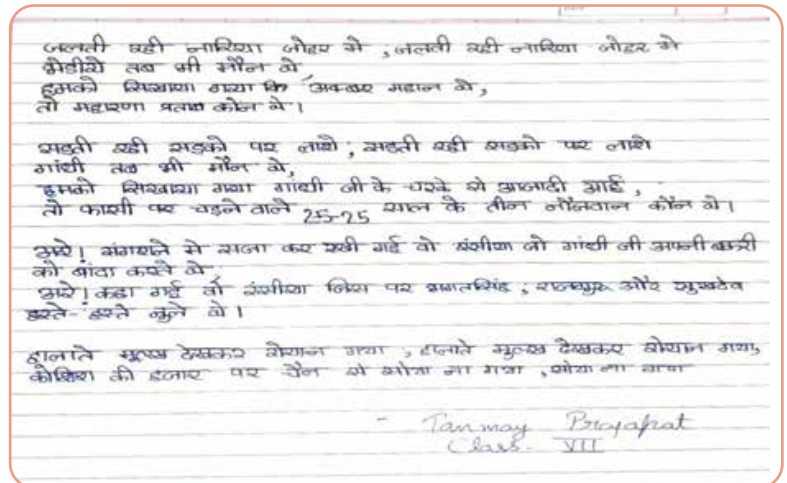 जलती रही नारिया जोहर मे , जलती रही नारिया जोहर मे
भेडीये तब भी मौन थे
हमको सिखाया गया कि अकबर महान थे,
तो महारणा प्रताब कोन थे ।
सडती रही सडको पर लाशे , सडती रही सडको पर लाशे
गांधी तब भी मौन थे,
हमको सिखाया गया गांधी जी के चरखे से आजादी आई ,
तो फासी पर चडने वाले 25-25 साल के तीन नौजवान कौन थे ।
अरे ! संग्राहले मे सजा कर रखी गई वो रंसीया जो गांधी जी अपनी बकरी
को बांदा करते थे ,
अरे ! कहा गई वो रंसीया जिस पर भगतसिंह , राजगुरू और सुखदेव
हस्ते-हस्ते जुले थे ।
हालाते मुल्ख देखकर रोया ना गया , हालाते मुल्ख देखकर रोया ना गया,
कोशिश की हजार पर चैन से सोया ना गया , सोया ना गया
- Tanmay Prajapat
Class- VII